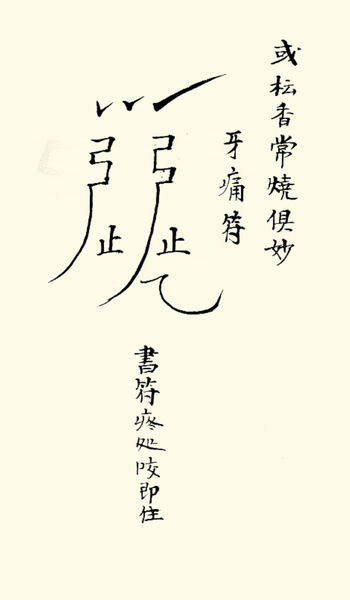 或枟香常燒俱妙
牙痛符
止止
書符疼处咬即住